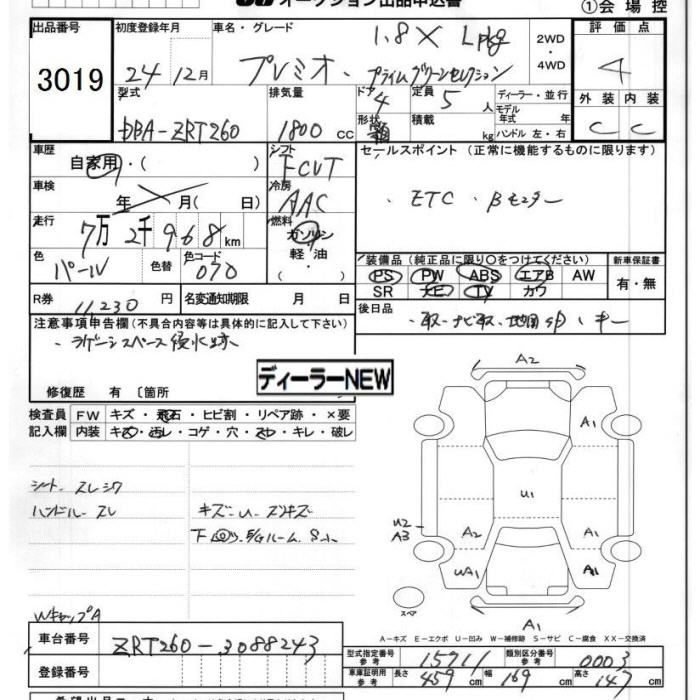 オークション出品申込書
①会場控
出品番号 初度登録年月 車名・グレード 評価点
3019 24年12月 プレミオ、1.8X Lpkg プライムグリーンセレクション 2WD・4WD 4
型式 排気量 ドア 定員 ディーラー・並行 外装 内装
DBA-ZRT260 1800cc 4 5人 モデル年式 年 C C
形状 積載 kg ハンドル 左・右
車歴 シフト セールスポイント (正常に機能するものに限ります)
自家用・( ) FCVT
車検 年 月( 日) 冷房 AAC ・ETC ・Bモニター
走行 7万2千968km 燃料 ガソリン
色 パール 色替 色コード 070 軽油・( )
装備品(純正品に限り○をつけてください) 新車保証書
PS PW ABS エアB AW 有・無
SR ナビ TV カワ
R券 11,230円 名変通知期限 月 日
後日品 ・取・ナビ取、地図SD、キー
注意事項申告欄(不具合内容等は具体的に記入して下さい)
・ラゲージスペース浸水跡
ディーラーNEW
修復歴 有〔箇所
検査員記入欄 FW キズ・飛石・ヒビ割・リペア跡・×要
内装 キズ・汚レ・コゲ・穴・スレ・キレ・破レ
シート-スレシワ
ハンドル-スレ キズ-U-スリキズ
下回り、E/Gルーム、Sサビ
WキャップA
A2
A1
U1
U2
A3
A2 A1
UA1 A1
スペア
A1
A-キズ E-エクボ U-凹み W-補修跡 S-サビ C-腐食 XX-交換済
車台番号 ZRT260-3088243
型式指定番号 参考 15711 類別区分番号 参考 0003
登録番号
車庫証明用 参考 長さ 459cm 幅 169cm 高さ 147cm